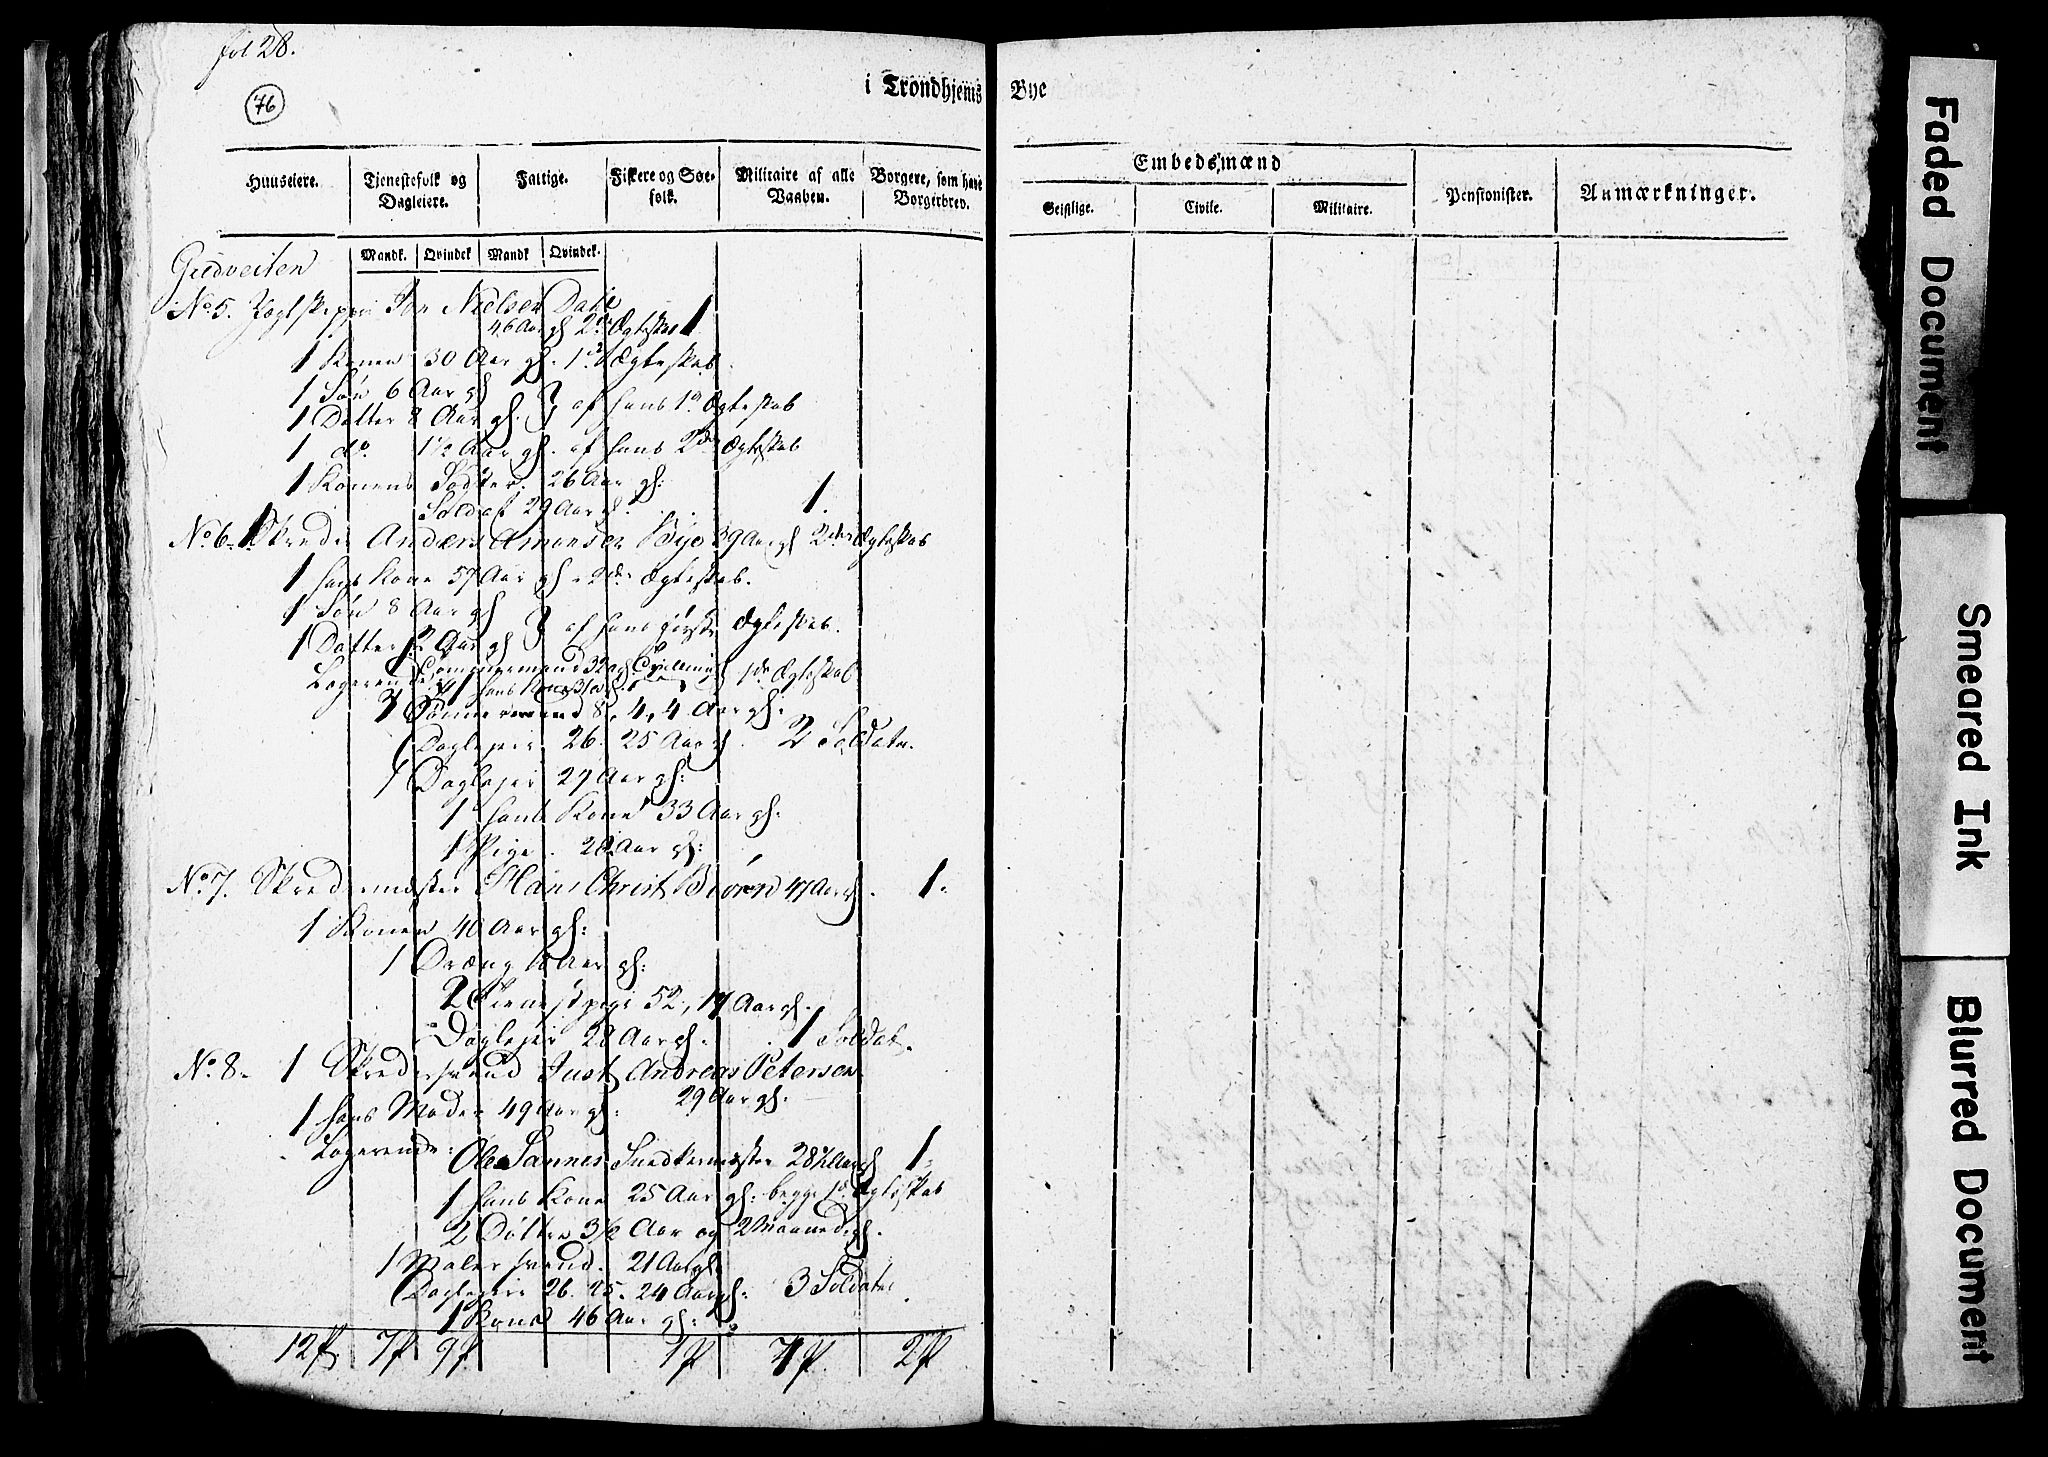 fol 28.
76
i Trondhjems Bye
Huuseiere.
Tjenestefolk og Dagleiere.
Fattige.
Fiskere og Søefolk.
Militaire af alle Vaaben.
Borgere, som have Borgerbrev.
Embedsmænd
Geistlige.
Civile.
Militaire.
Pensionister.
Anmærkninger.
Mandk. Qvindek Mandk Qvindek.
No 5. Jon Nielsen Dahl 1
46 Aar gl 2de Ægteskab
1 Konen 30 Aar gl. 1te Ægteskab.
1 Søn 6 Aar gl
1 Datter 8 Aar gl. af hans 1te Ægteskab
1 do. 1½ Aar gl. af hans 2det Ægteskab
1 Konens Søster. 26 Aar gl:
Soldat 29 Aar gl. 1.
No 6. 1 Skreder Anders Bye 39 Aar gl 2det Ægteskab
1 hans Kone 57 Aar gl. 2de Ægteskab.
1 Søn 8 Aar gl
1 Datter 2 Aar gl af hans første Ægteskab.
Logerende 32 1te Ægteskab
3 Sønner 8, 4, 4 Aar gl.
Daglejere 26. 25 Aar gl. 2 Soldater.
1 Daglejer 29 Aar gl:
1 hans Kone 33 Aar gl:
1 Pige. 20 Aar gl:
No 7. Skredermester Hans Christ Biørn 47 Aar gl. 1.
1 Konen 40 Aar gl:
1 Dræng Aar gl:
2 Tienestpige 52, 17 Aar gl.
Daglejer 28 Aar gl. 1 Soldat.
No 8. 1 Skredersvend Just Andreas Petersen
29 Aar gl.
1 hans Moder 49 Aar gl:
Logerende: Ole Sannes Snedkermester 28½ Aar gl 1.
1 hans Kone 25 Aar gl: begge 1te Ægteskab
2 Døttre 3½ Aar og 2 Maaneder gl.
1 Malersvend. 21 Aar gl.
Daglejere 26. 25. 24 Aar gl: 3 Soldater
1 Kone 46 Aar gl:
12 P 7 P 9 P 1 P 7 P 2 P
Faded Document
Smeared Ink
Blurred Document